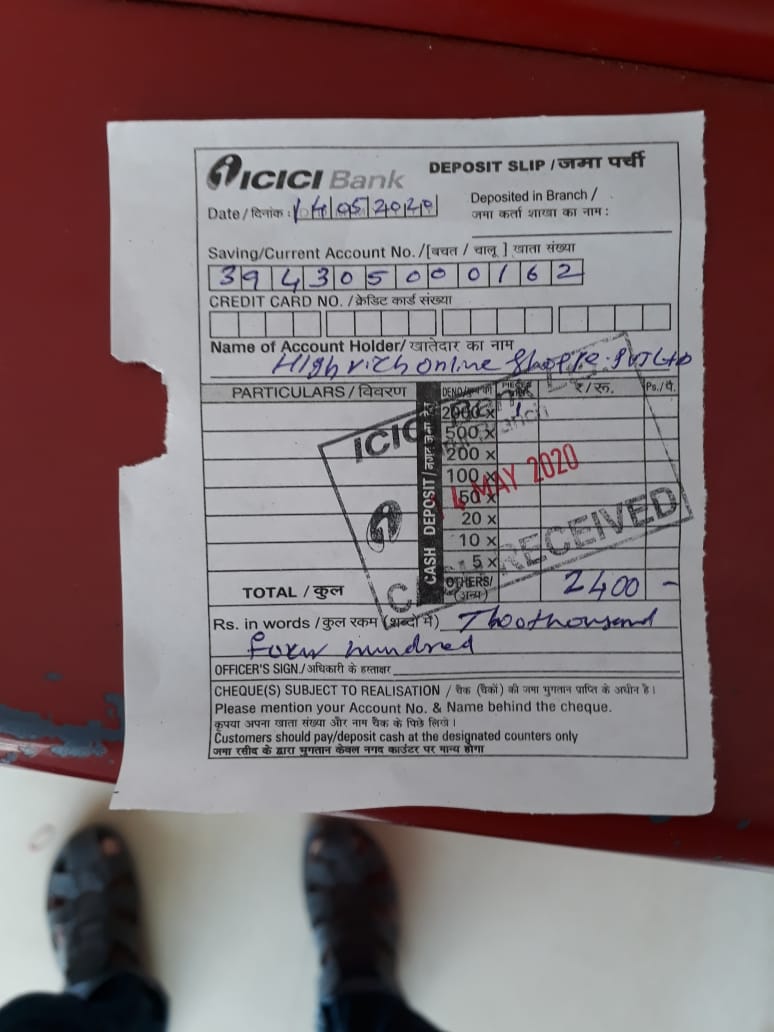 ICICI Bank
DEPOSIT SLIP / जमा पर्ची
Date / दिनांक : 14052020
Deposited in Branch /
जमा कर्ता शाखा का नाम :
Saving/Current Account No. / [बचत / चालू ] खाता संख्या
394305000162
CREDIT CARD NO. / क्रेडिट कार्ड संख्या
Name of Account Holder/ खातेदार का नाम
Highrich online Shoppe. PVT LtD
PARTICULARS / विवरण
CASH DEPOSIT /
₹ / रू.
Ps./ पै.
2000 x 1
500 x
200 x
100 x
50 x
20 x
10 x
5 x
OTHERS/ (अन्य)
ICICI
14 MAY 2020
RECEIVED
TOTAL / कुल 2400 -
Rs. in words / कुल रकम (शब्दों में) Twothousand
four hundred
OFFICER'S SIGN./ अधिकारी के हस्ताक्षर
CHEQUE(S) SUBJECT TO REALISATION / चैक (चैकों) की जमा भुगतान प्राप्ति के अधीन है।
Please mention your Account No. & Name behind the cheque.
कृपया अपना खाता संख्या और नाम चैक के पिछे लिखे।
Customers should pay/deposit cash at the designated counters only
जमा रसीद के द्वारा भुगतान केवल नगद काउंटर पर मान्य होगा